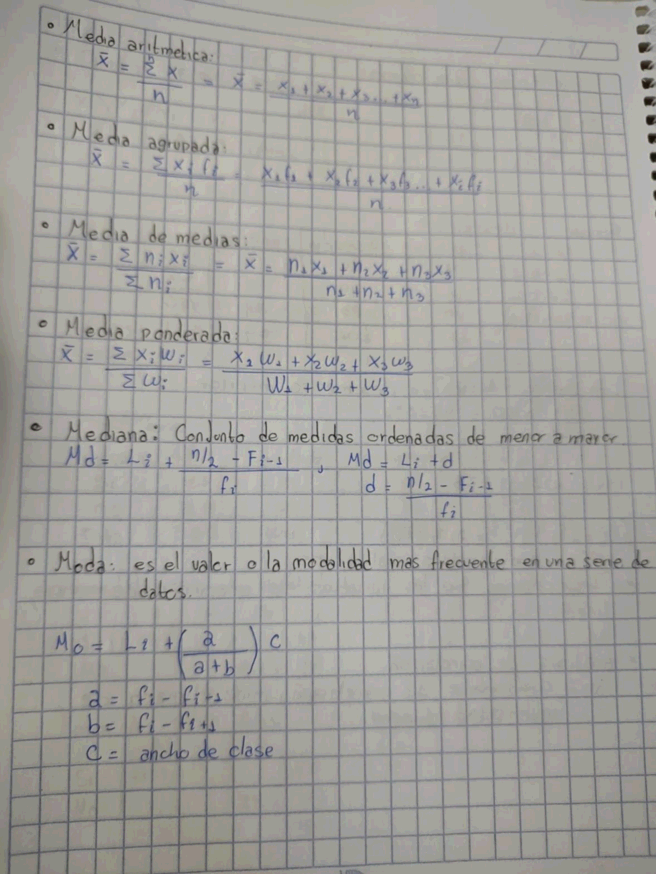 • Media aritmetica:
x̄ = Σ x / n = x̄ = x₁ + x₂ + x₃... + xn / n
• Media agrupada:
x̄ = Σ xᵢ fᵢ / n = x₁f₁ + x₂f₂ + x₃f₃... + xᵢfᵢ / n
• Media de medias:
x̄ = Σ nᵢ xᵢ / Σ nᵢ = x̄ = n₁x₁ + n₂x₂ + n₃x₃ / n₁ + n₂ + n₃
• Media ponderada:
x̄ = Σ xᵢ wᵢ / Σ wᵢ = x₁ w₁ + x₂ w₂ + x₃ w₃ / w₁ + w₂ + w₃
• Mediana: Conjunto de medidas ordenadas de menor a mayor
Md = Lᵢ + n/2 - Fᵢ₋₁ / fᵢ , Md = Lᵢ + d
d = n/2 - Fᵢ₋₁ / fᵢ
• Moda: es el valor o la modalidad mas frecuente en una serie de
datos.
Mo = Lᵢ + (a / a+b) c
a = fᵢ - fᵢ₋₁
b = fᵢ - fᵢ₊₁
C = ancho de clase